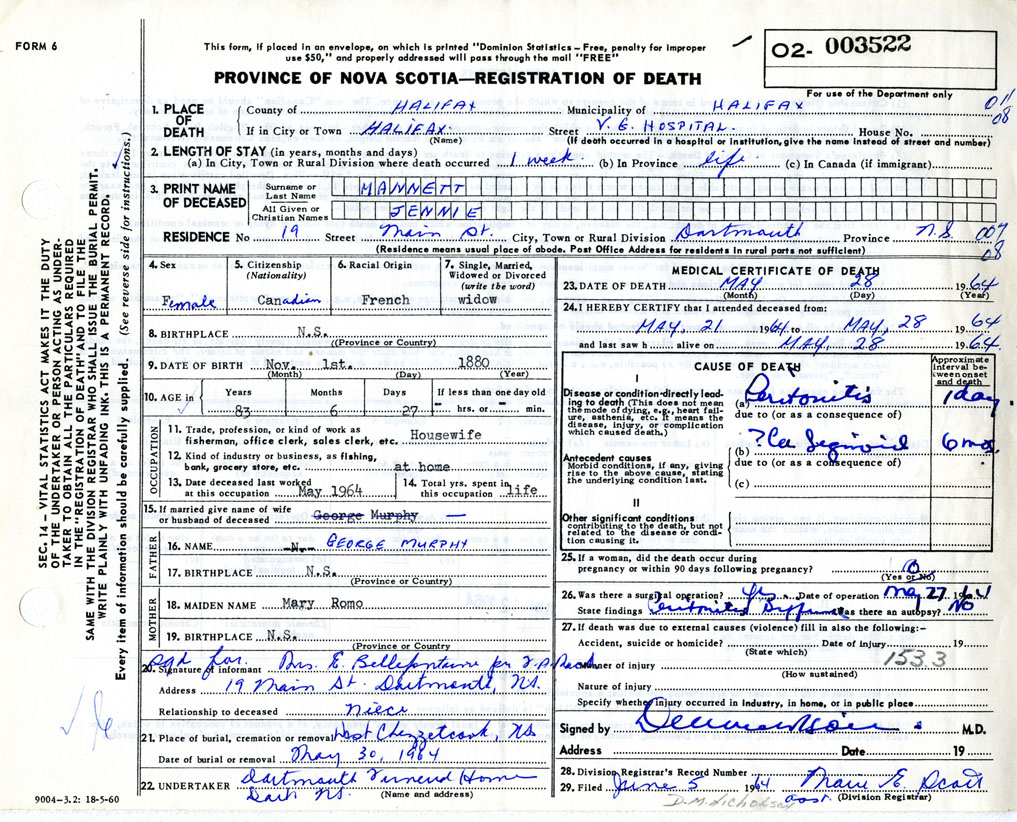 FORM 6
This form, if placed in an envelope, on which is printed "Dominion Statistics – Free, penalty for improper
use $50," and properly addressed will pass through the mail "FREE"
O2- 003522
For use of the Department only
PROVINCE OF NOVA SCOTIA—REGISTRATION OF DEATH
1. PLACE OF DEATH
County of HALIFAX Municipality of HALIFAX 011
08
If in City or Town HALIFAX. Street V. G. HOSPITAL. House No.
(Name) (If death occurred in a hospital or institution, give the name instead of street and number)
2. LENGTH OF STAY (in years, months and days)
(a) In City, Town or Rural Division where death occurred 1 week. (b) In Province life. (c) In Canada (if immigrant)
3. PRINT NAME OF DECEASED
Surname or Last Name MANNETT
All Given or Christian Names JENNIE
RESIDENCE No 19 Street Main St. City, Town or Rural Division Dartmouth Province N.S. 007
08
(Residence means usual place of abode. Post Office Address for residents in rural parts not sufficient)
4. Sex
Female
5. Citizenship
(Nationality)
Canadian
6. Racial Origin
French
7. Single, Married,
Widowed or Divorced
(write the word)
widow
8. BIRTHPLACE N.S.
((Province or Country)
9. DATE OF BIRTH Nov. 1st. 1880
(Month) (Day) (Year)
10. AGE in
Years Months Days If less than one day
83 6 27 - hrs. or - min.
OCCUPATION
11. Trade, profession or kind of work as
fisherman, office clerk, sales clerk, etc. Housewife
12. Kind of industry or business, as fishing,
bank, grocery store, etc. at home
13. Date deceased last worked
at this occupation May 1964
14. Total yrs. spent in
this occupation life
15. If married give name of wife
or husband of deceased George Murphy —
FATHER
16. NAME -N- GEORGE MURPHY
17. BIRTHPLACE N.S.
(Province or Country)
MOTHER
18. MAIDEN NAME Mary Romo
19. BIRTHPLACE N.S.
(Province or Country)
sgd for
20. Signature of informant Mrs. E. Bellefontaine per
Address 19 Main St. Dartmouth, N.S.
Relationship to deceased niece
21. Place of burial, cremation or removal West Chezzetcook, NS
Date of burial or removal May 30, 1964
22. UNDERTAKER Dartmouth Funeral Home
Dart NS.
(Name and address)
9004-3.2: 18-5-60
SEC. 14 – VITAL STATISTICS ACT MAKES IT THE DUTY
OF THE UNDERTAKER OR PERSON ACTING AS UNDER-
TAKER TO OBTAIN ALL THE PARTICULARS REQUIRED
IN THE "REGISTRATION OF DEATH" AND TO FILE THE
SAME WITH THE DIVISION REGISTRAR WHO SHALL ISSUE THE BURIAL PERMIT.
WRITE PLAINLY WITH UNFADING INK. THIS IS A PERMANENT RECORD.
Every item of information should be carefully supplied. (See reverse side for instructions.)
MEDICAL CERTIFICATE OF DEATH
23. DATE OF DEATH MAY 28 1964
(Month) (Day) (Year)
24. I HEREBY CERTIFY that I attended deceased from:
MAY, 21 1964 to MAY, 28 1964
and last saw h alive on MAY 28 1964.
CAUSE OF DEATH
Approximate
interval be-
tween onset
and death
I
Disease or condition directly lead-
ing to death (This does not mean
the mode of dying, e.g., heart fail-
ure, asthenia, etc. It means the
disease, injury, or complication
which caused death.)
(a) Peritonitis 1 day.
due to (or as a consequence of)
Antecedent causes
Morbid conditions, if any, giving
rise to the above cause, stating
the underlying condition last.
(b) ? Ca Sigmoid 6 mos.
due to (or as a consequence of)
(c)
II
Other significant conditions
contributing to the death, but not
related to the disease or condi-
tion causing it.
25. If a woman, did the death occur during
pregnancy or within 90 days following pregnancy? O
(Yes or No)
26. Was there a surgical operation? Yes. Date of operation May 27 1964
State findings Peritonitis Was there an autopsy? NO
27. If death was due to external causes (violence) fill in also the following:-
Accident, suicide or homicide? Date of injury 19
(State which)
153.3
Manner of injury
(How sustained)
Nature of injury
Specify whether injury occurred in industry, in home, or in public place
Signed by M.D.
Address Date 19
28. Division Registrar's Record Number
29. Filed June 5 1964 Marie E. Scott
asst. (Division Registrar)
D.M. Nicholson